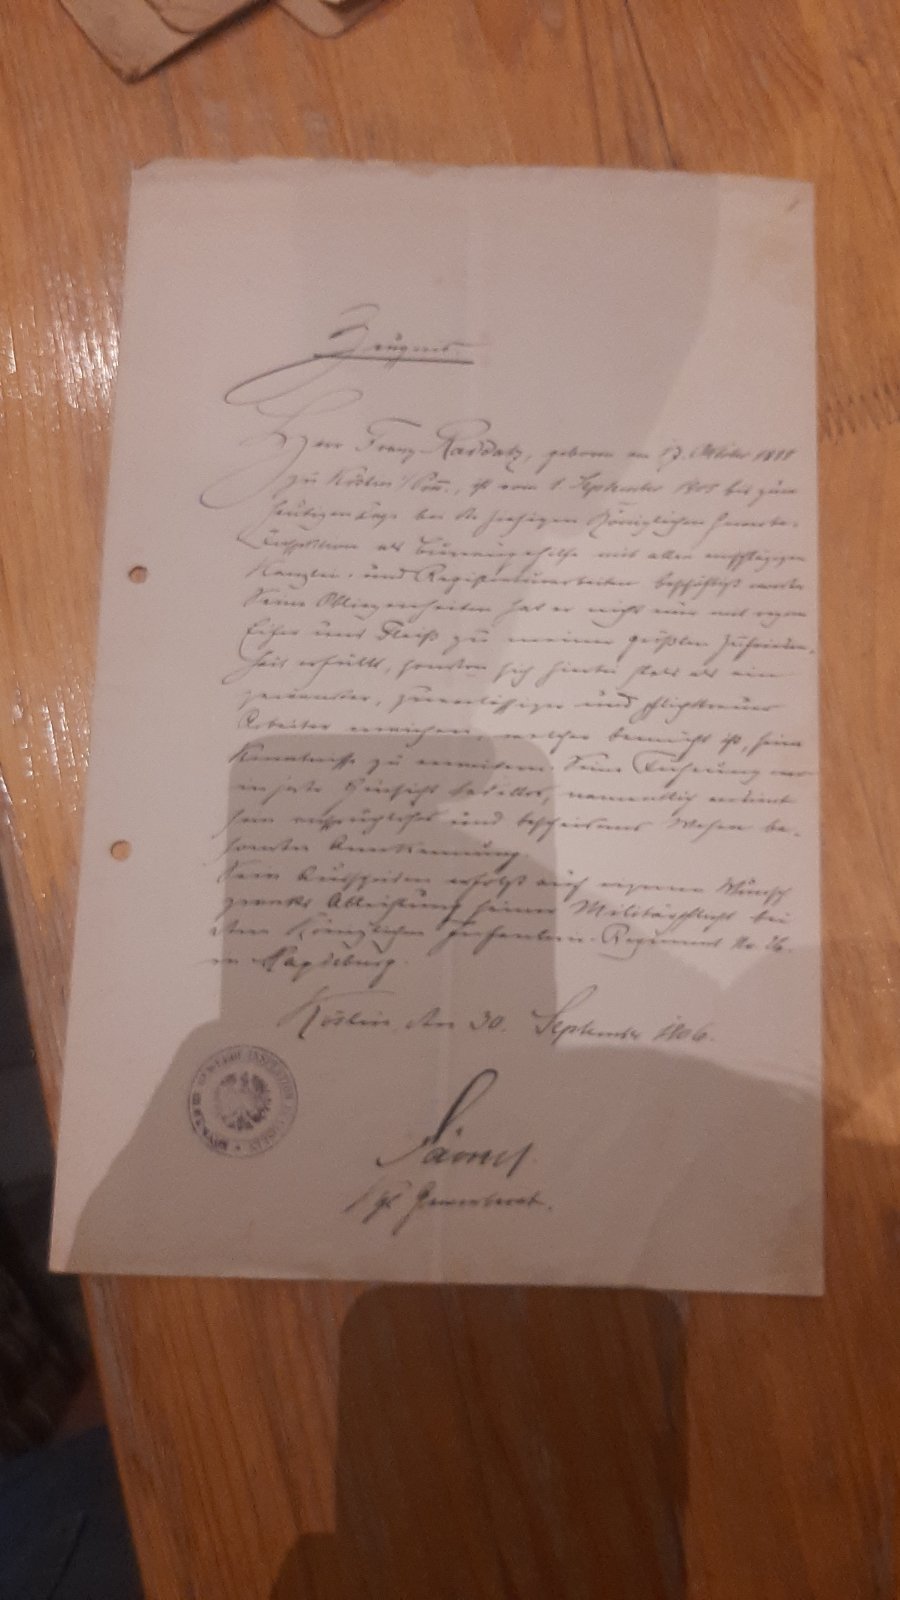 Zeugnis.
Herr Franz Raddatz, geboren am 17. Oktober
zu Köslin i/Pom., ist vom 1. September bis zum
heutigen Tage bei der hiesigen Königlichen Gewerbe-
Inspektion als Büreaugehilfe mit allen einschlägigen
Kanzlei- und Registraturarbeiten beschäftigt worden.
Seine Obliegenheiten hat er nicht nur mit regem
Eifer und Fleiß zu meiner größten Zufrieden-
heit erfüllt, sondern sich hierbei stets als ein
gewandter, zuverlässiger und pflichttreuer
Arbeiter erwiesen, welcher bemüht ist, seine
Kenntnisse zu erweitern. Seine Führung war
in jeder Hinsicht tadellos, namentlich verdient
sein und bescheidenes Wesen be-
sondere Anerkennung.
Sein Ausscheiden erfolgt auf eigenen Wunsch
zwecks Ableistung seiner Militärpflicht bei
dem Königlichen Infanterie-Regiment No. 26.
in Magdeburg.
Köslin, den 30. September 1906.
KÖNIGL. GEWERBE INSPEKTION KÖSLIN
Kgl. Gewerberat.